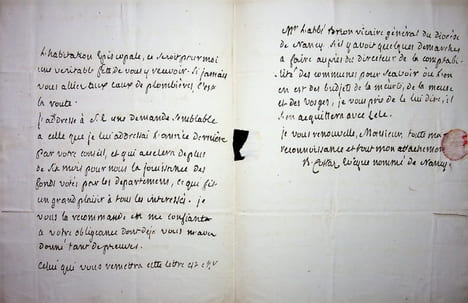 L'habitation Episcopale, ce seroit pour moi
une veritable fête de vous y recevoir. Si jamais
vous alliez aux eaux de plombieres, c'est
la route.
j'adresse à S. E. une demande semblable
a celle que je lui adressai l'année derniere
par votre conseil, et qui accelera de plus
de six mois pour nous la jouissance des
fonds votés par les departemens, ce qui fit
un grand plaisir à tous les interessés. je
vous la recommande en me confiant
a votre obligeance dont deja vous m'avez
donné tant de preuves.
Celui qui vous remettra cette lettre est
Mr l'abbé vicaire général du diocèse
de Nancy. S'il y avoit quelques demarches
a faire auprès du Directeur de la comptabi-
lité des communes pour scavoir où l'on
en est des budgets de la meurte, de la meuse
et des vosges, je vous prie de le lui dire, il
s'en acquittera avec zele.
je vous renouvelle, Monsieur toute ma
reconnoissance et tout mon attachement
évêque nommé de Nancy